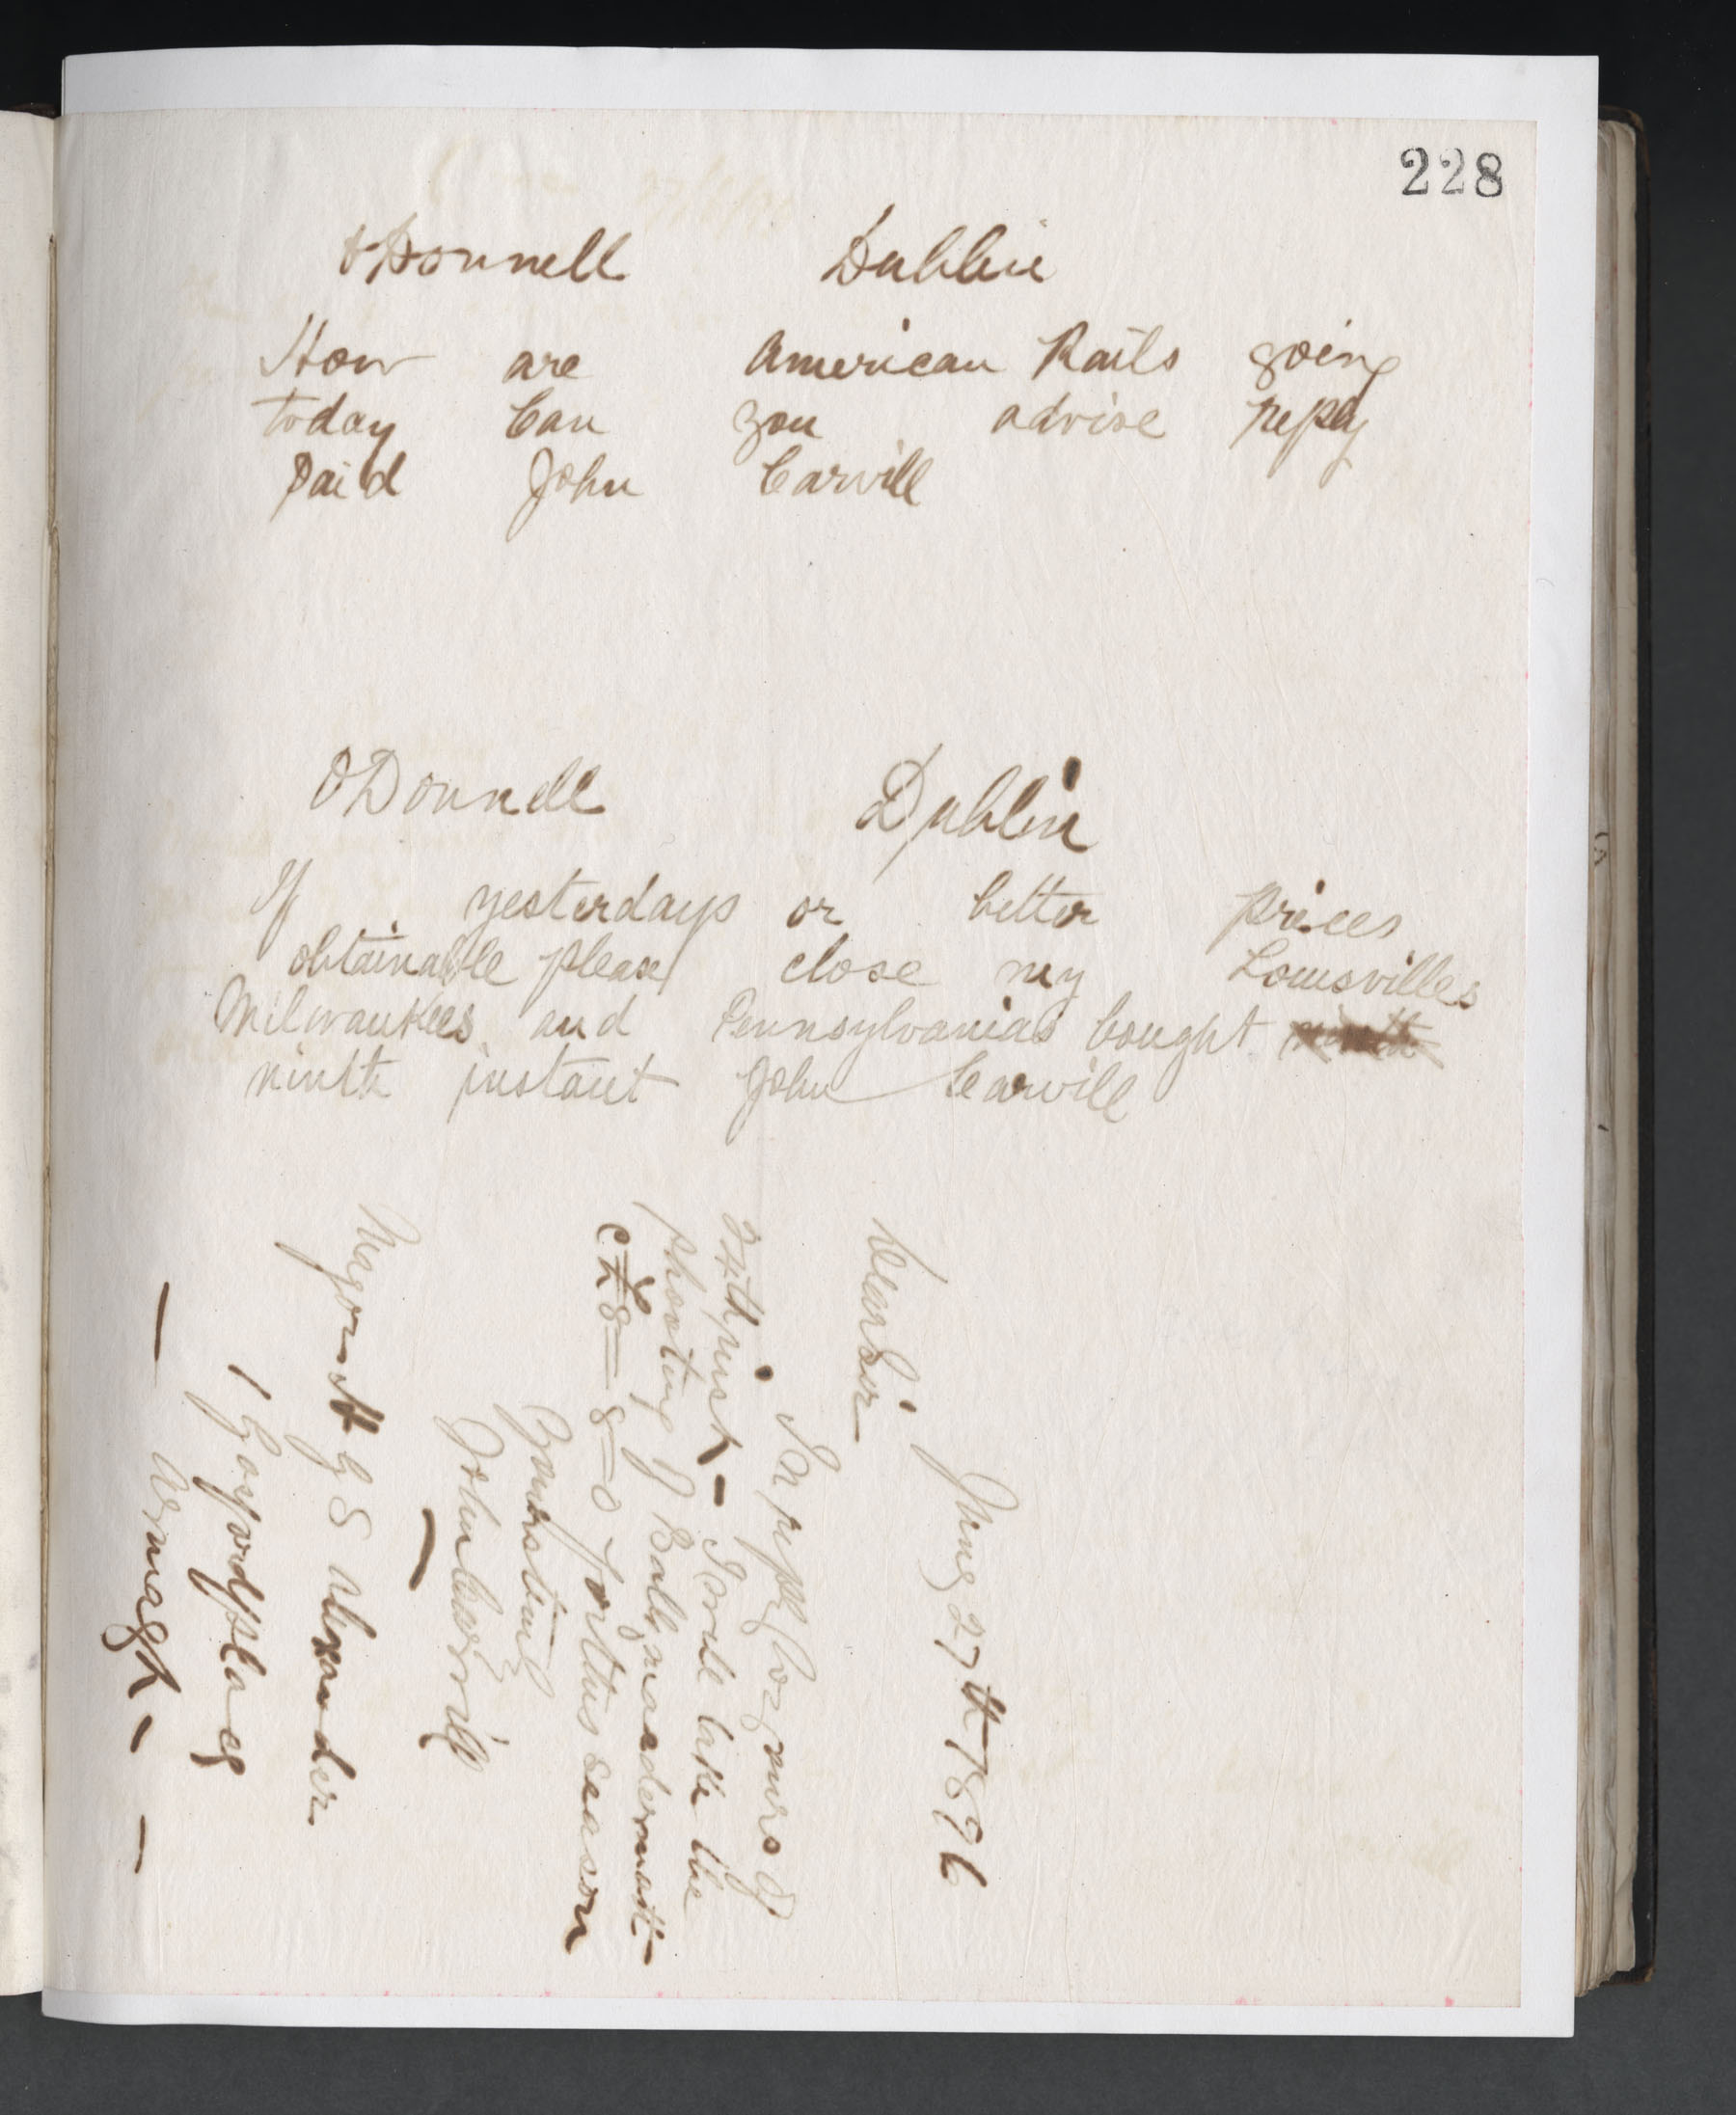 228
O'Donnell Dublin
How are American Rails going
today Can you advise reply
paid John Carvill
O'Donnell Dublin
If yesterdays or better prices
obtainable please close my Louisvilles
Milwaukees and Pennsylvanias bought
ninth instant John Carvill
June 27th 1896
Dear Sir
In reply to yours of
inst - I will take the
shooting of Ballymacdermott
@ £8=8=0 for this season
Yours truly
John Carvill
Major H G S Alexander
1 Gosford place
Armagh -